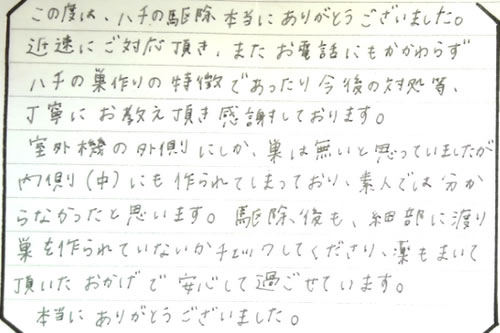 この度は、ハチの駆除本当にありがとうございました。
迅速にご対応頂き、またお電話にもかかわらず
ハチの巣作りの特徴であったり今後の対処等、
丁寧にお教え頂き感謝しております。
室外機の外側にしか、巣は無いと思っていましたが
内側(中)にも作られてしまっており、素人では分か
らなかったと思います。駆除後も、細部に渡り
巣を作られていないかチェックしてくださり、薬もまいて
頂いたおかげで安心して過ごせています。
本当にありがとうございました。